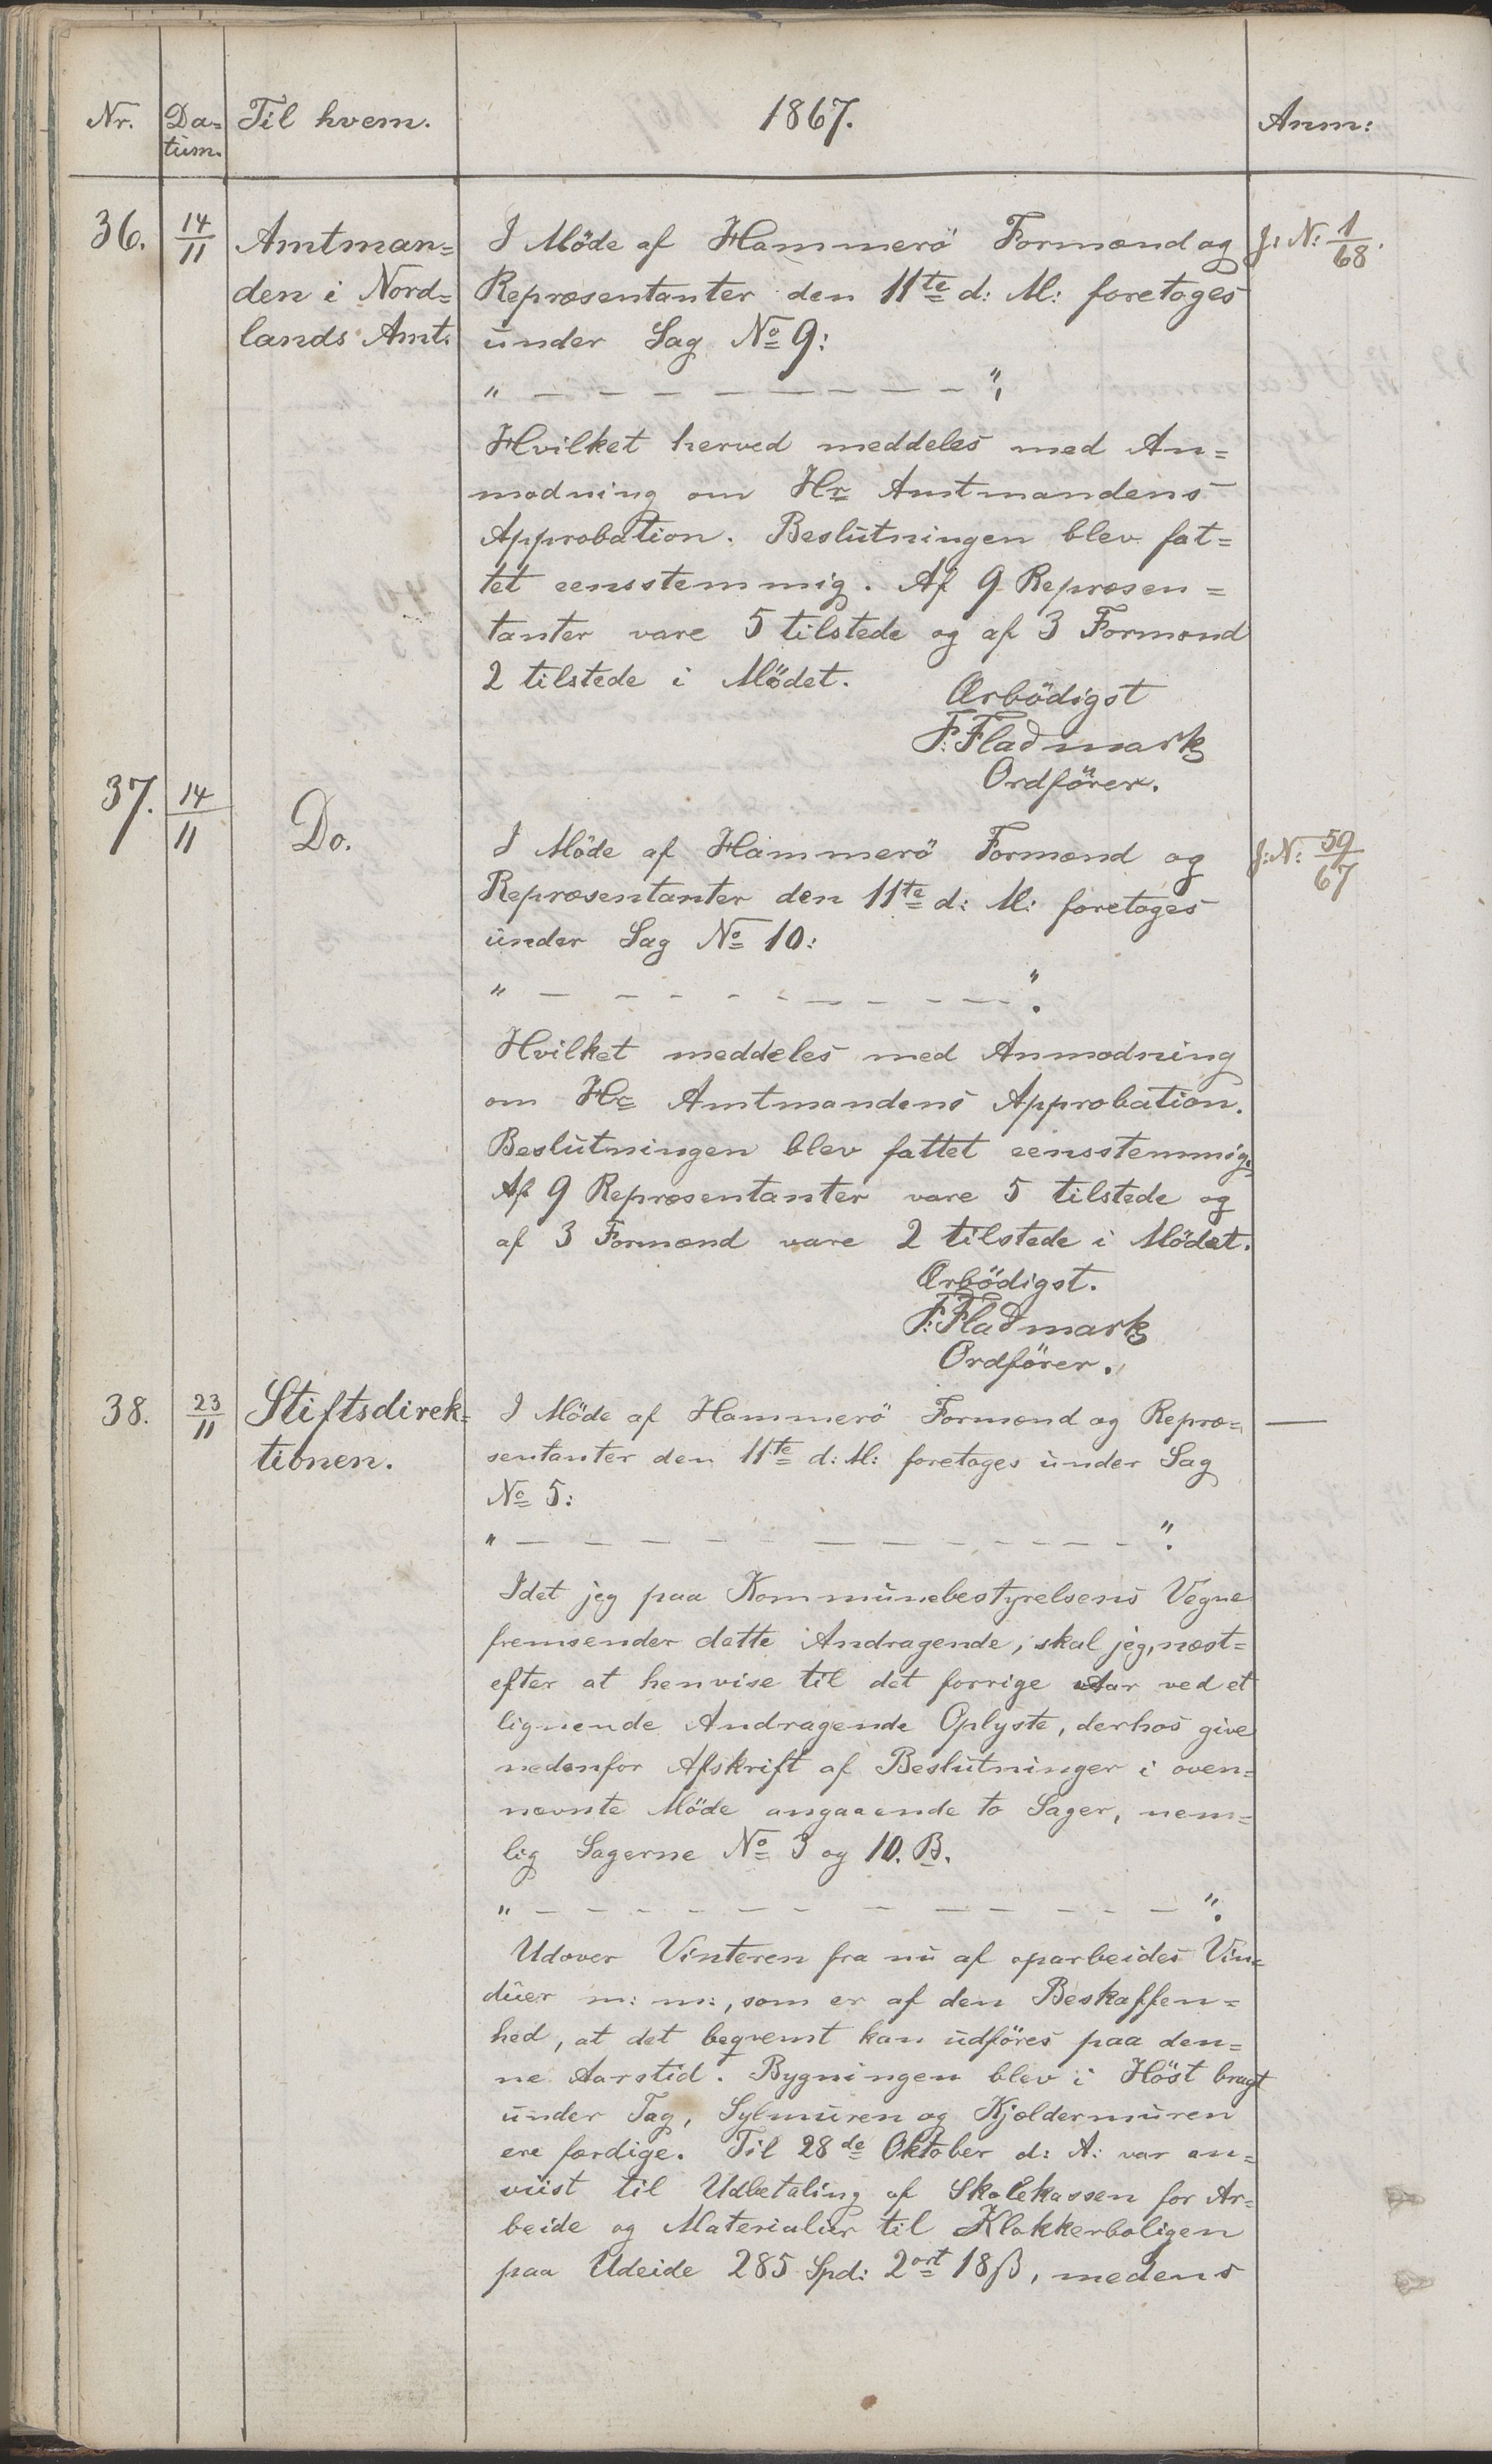 Nr. Da= Til hvem. 1867. Anm:
tum.
36. 14/11 Amtman= I Möde af Hammerö Formænd og J: N: 1/68.
den i Nord= Repræsentanter den 11te d: M: foretoges
lands Amt. under Sag No 9:
" — — — — — — — — — ";
Hvilket herved meddeles med An=
modning om Hr Amtmandens
Approbation. Beslutningen blev fat=
tet eensstemmig. Af 9 Repræsen=
tanter vare 5 tilstede og af 3 Formænd
2 tilstede i Mödet.
Ærbödigst
F: Fladmark
Ordförer.
37. 14/11 Do. I Möde af Hammerö Formænd og J: N: 59/67
Repræsentanter den 11te d: M: foretoges
under Sag No 10:
" — — — — — — — — — ".
Hvilket meddeles med Anmodning
om Hr Amtmandens Approbation.
Beslutningen blev fattet eensstemmig.
Af 9 Repræsentanter vare 5 tilstede og
af 3 Formænd vare 2 tilstede i Mödet.
Ærbödigst.
F: Fladmark
Ordförer.
38. 23/11 Stiftsdirek= I Möde af Hammerö Formænd og Repræ= —
tionen. sentanter den 11te d: M: foretoges under Sag
No 5:
" — — — — — — — — — — — — ".
Idet jeg paa Kommunebestyrelsens Vegne
fremsender dette Andragende, skal jeg, næst=
efter at henvise til det forrige Aar ved et
lignende Andragende Oplyste, derhos give
nedenfor Afskrift af Beslutninger i oven=
nævnte Möde angaaende to Sager, nem=
lig Sagerne No 3 og 10. B.
" — — — — — — — — — — — — ".
Udover Vinteren fra nu af oparbeides Vin=
duer m: m:, som er af den Beskaffen=
hed, at det beqvemt kan udföres paa den=
ne Aarstid. Bygningen blev i Höst bragt
under Tag, Sylmuren og Kjældermuren
ere færdige. Til 28de Oktober d: A: var an=
viist til Udbetaling af Skolekassen for Ar=
beide og Materialier til Klokkerboligen
paa Udeide 285 Spd: 2ort 18ß, medens